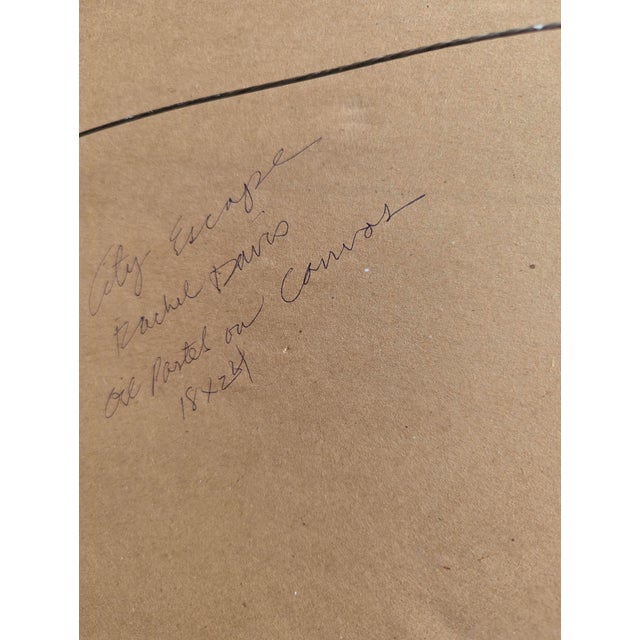 City Escape
Rachel Davis
Oil Pastel on Canvas
18x24